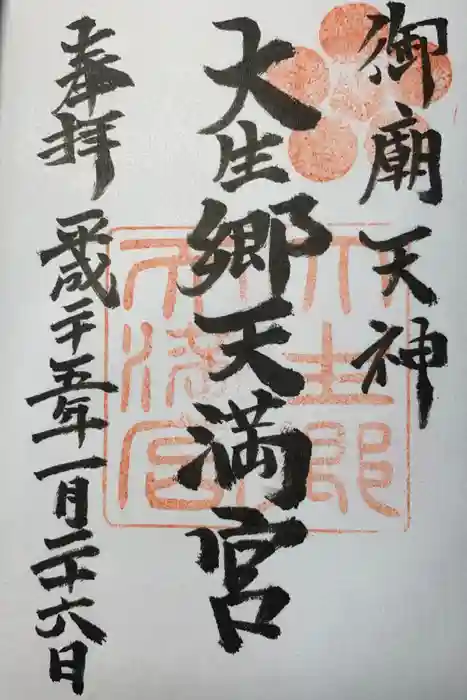 御廟天神
大生郷天満宮
奉拝
平成二十五年一月二十六日